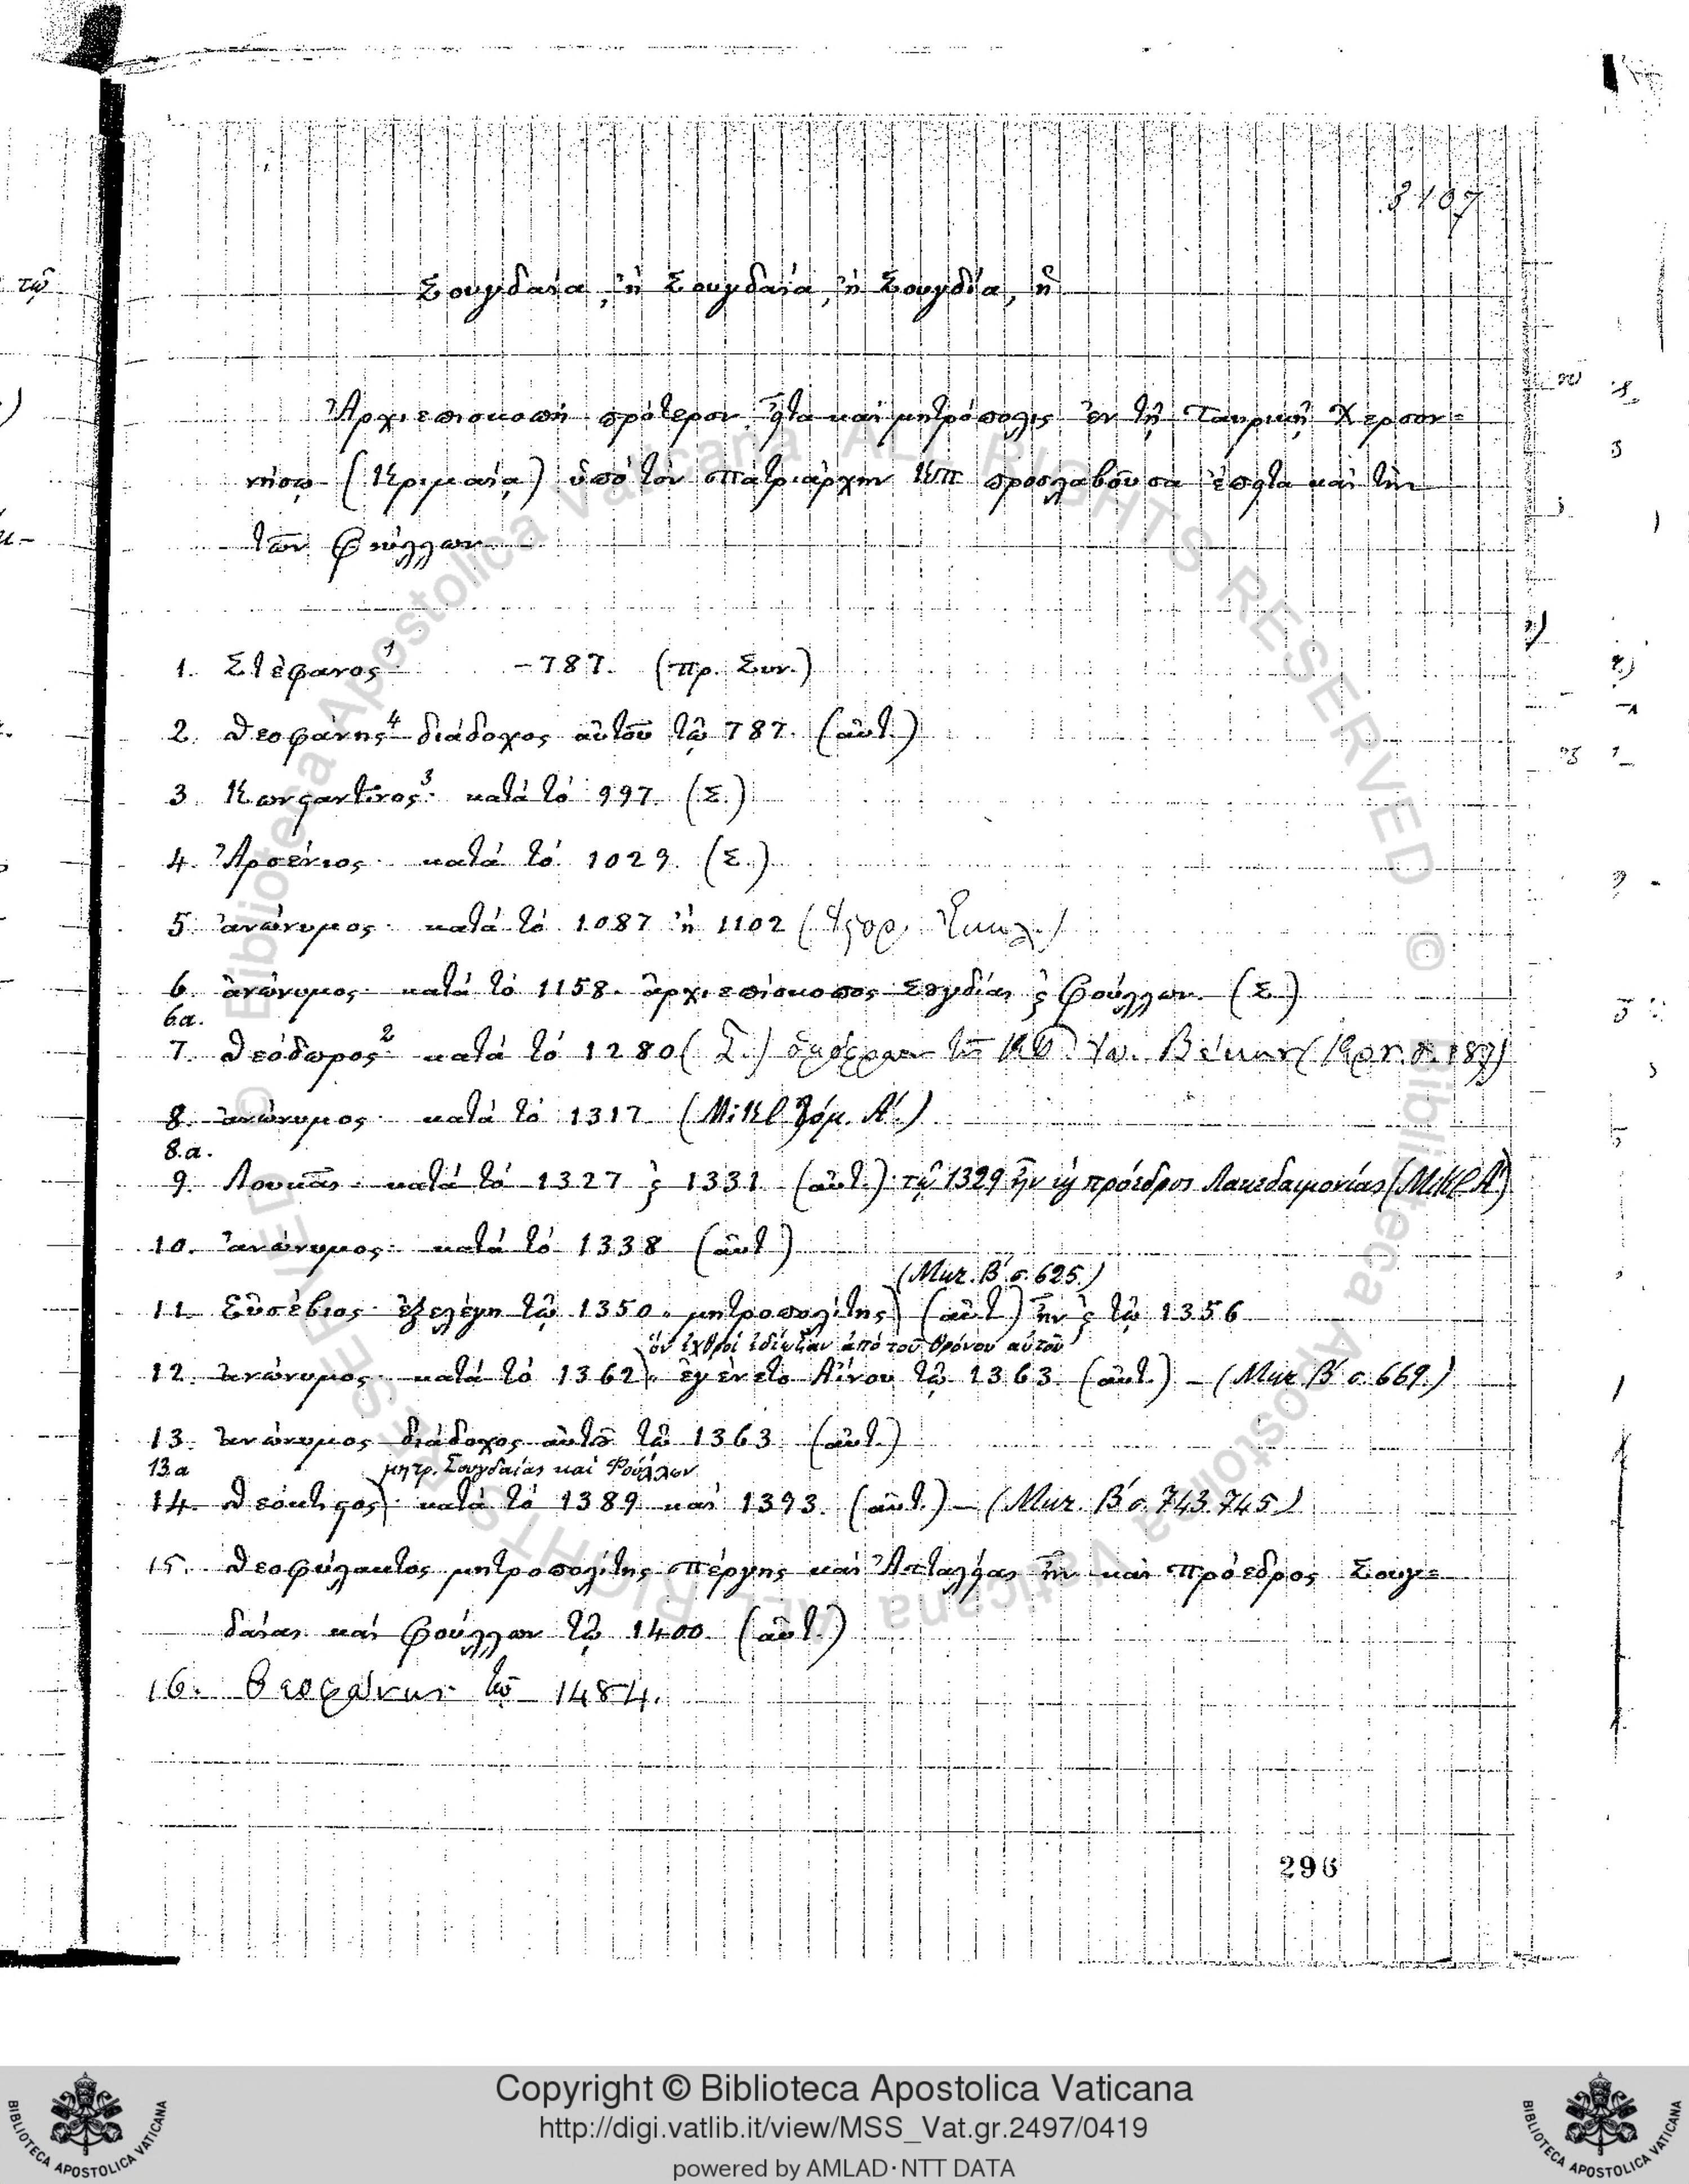 3107
Σουγδαία, ἢ Σουγδαΐα, ἢ Σουγδία, ἡ
Ἀρχιεπισκοπὴ πρότερον εἶτα καὶ μητρόπολις ἐν τῇ Ταυρικῇ Χερσον=
νήσῳ (Κριμαίᾳ) ὑπὸ τὸν Πατριάρχην ΚΠ προσλαβοῦσα ἔπειτα καὶ τὴν
τῶν Φούλλων
1. Στέφανος¹· -787. (πρ. Συν.)
2. Θεοφάνης⁴ διάδοχος αὐτοῦ τῷ 787. (αὐτ.)
3. Κωνσταντῖνος³· κατὰ τὸ 997 (Σ.)
4. Ἀρσένιος· κατὰ τὸ 1029. (Σ.)
5. ἀνώνυμος· κατὰ τὸ 1087 ἢ 1102
6. ἀνώνυμος· κατὰ τὸ 1158. ἀρχιεπίσκοπος Σουγδίας ϗ Φούλλων. (Σ.)
6.α.
7. Θεόδωρος²· κατὰ τὸ 1280 (Σ.)
8. ἀνώνυμος· κατὰ τὸ 1317 (ΜιΚΡ τόμ. Α΄.)
8.α.
9. Λουκᾶς· κατὰ τὸ 1327 ϗ 1331 (αὐτ.)· τῷ 1329 ἦν ϗ πρόεδρος Λακεδαιμονίας (ΜιΚΡ Α΄)
10. ἀνώνυμος· κατὰ τὸ 1338 (αὐτ.)
(Μικ. Β΄ σ. 625.)
11. Εὐσέβιος· ἐξελέγη τῷ 1350. μητροπολίτης) (αὐτ.) ἦν ϗ τῷ 1356
ὃν ἐχθροὶ ἐδίωξαν ἀπὸ τοῦ θρόνου αὐτοῦ
12. ἀνώνυμος· κατὰ τὸ 1362). ἐγένετο Αἴνου τῷ 1363. (αὐτ.) - (Μικ. Β΄ σ. 669.)
13. ἀνώνυμος διάδοχος αὐτοῦ τῷ 1363 (αὐτ.)
13.α
μητρ. Σουγδαίας καὶ Φούλλων
14. Θεόκτιστος)· κατὰ τὸ 1389 καὶ 1393. (αὐτ.) - (Μικ. Β΄ σ. 743. 745.)
15. Θεοφύλακτος μητροπολίτης Πέργης καὶ Ἀτταλείας ἦν καὶ πρόεδρος Σουγ=
δαίας καὶ Φούλλων τῷ 1400. (αὐτ.)
16. Θεοφάνης τῷ 1484.
296
Copyright © Biblioteca Apostolica Vaticana
http://digi.vatlib.it/view/MSS_Vat.gr.2497/0419
powered by AMLAD·NTT DATA